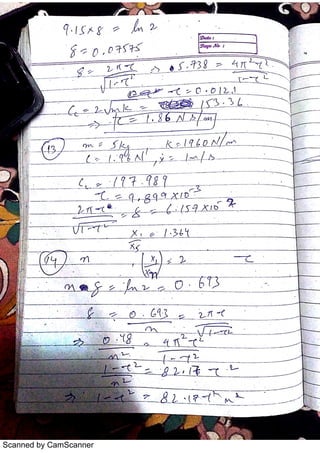 9.15×8 = ln 2
Date :
Page No :
δ = 0.07575
δ = 2πτ / √1-τ² ⇒ 5.738 = 4π²τ² / 1-τ²
τ = 0.0121
Cc = 2√mk = 153.36
⇒ C = 1.86 N s/m
(13) m = 5kg K = 1960 N/m
ẋ = 1 m/s
Cc = 197.989
τ = 9.899×10⁻³
2πτ / √1-τ² = δ = 6.159×10⁻²
x₁ / x₅ = 1.364
(14) n , = 2 τ
n δ = ln 2 = 0.693
δ = 0.693 / n = 2πτ / √1-τ²
⇒ 0.48 / n² = 4π²τ² / 1-τ²
1-τ² / n² = 82.17 τ²
⇒ 1-τ² = 82.17 τ² n²
Scanned by CamScanner